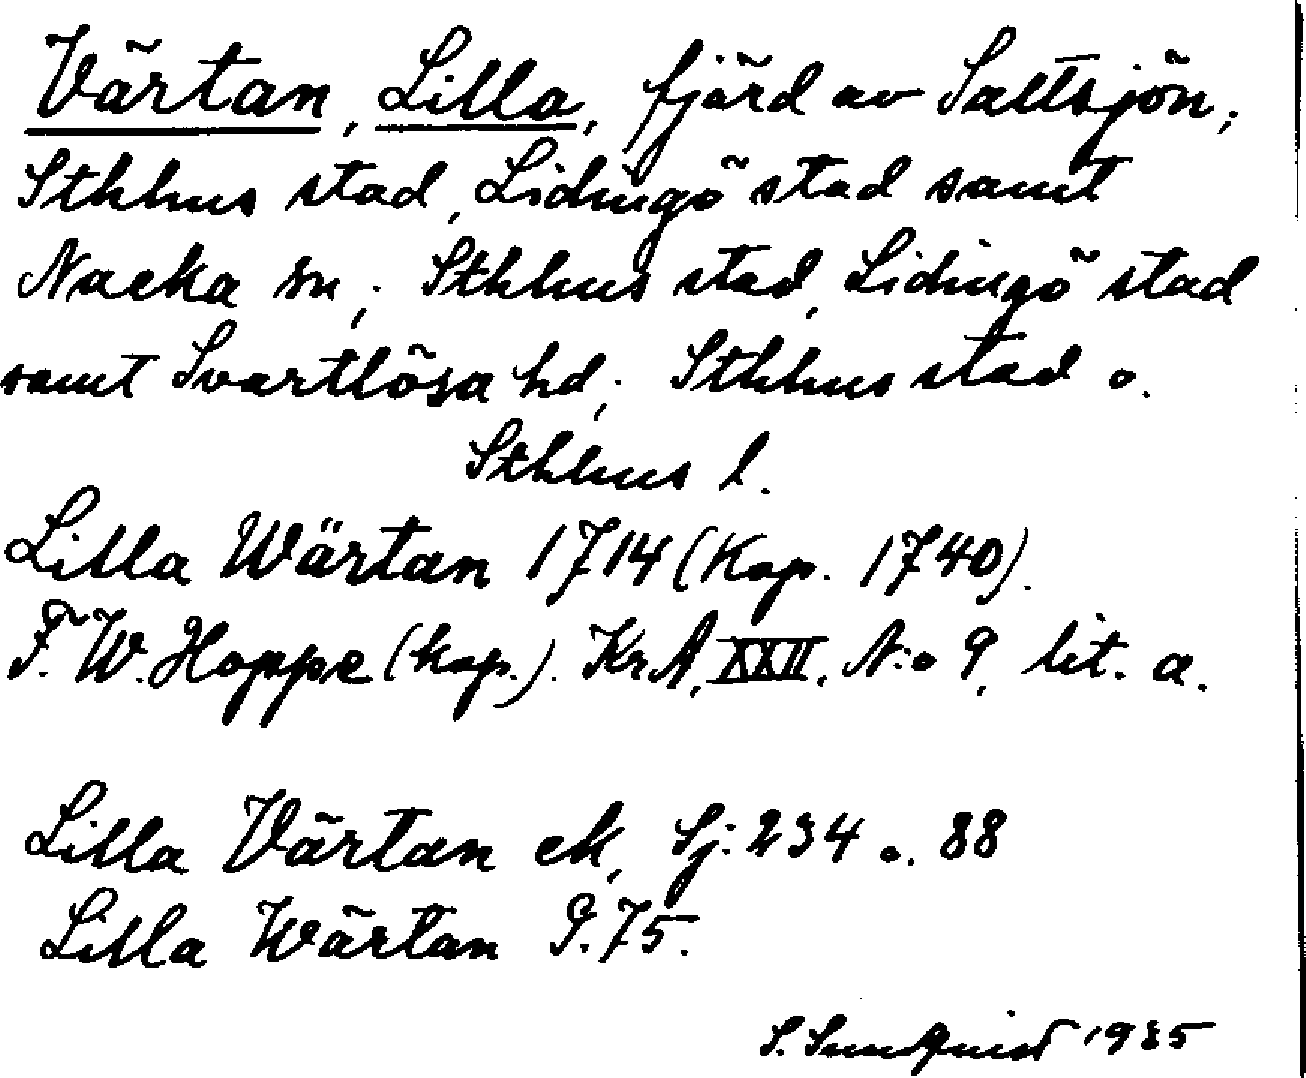 Värtan, Lilla, fjärd av Saltsjön,
Sthlms stad, Lidingö stad samt
Nacka sn; Sthlms stad, Lidingö stad
samt Svartlösa hd; Sthlms stad o.
Sthlms l.
Lilla Wärtan 1714 (Kop. 1740).
F. W. Hoppe (kop.). KrA, XXII, N:o 9, lit. a.
Lilla Värtan ek, Sj: 234 o. 88
Lilla Wärtan G. 75.
S. Sundquist 1935